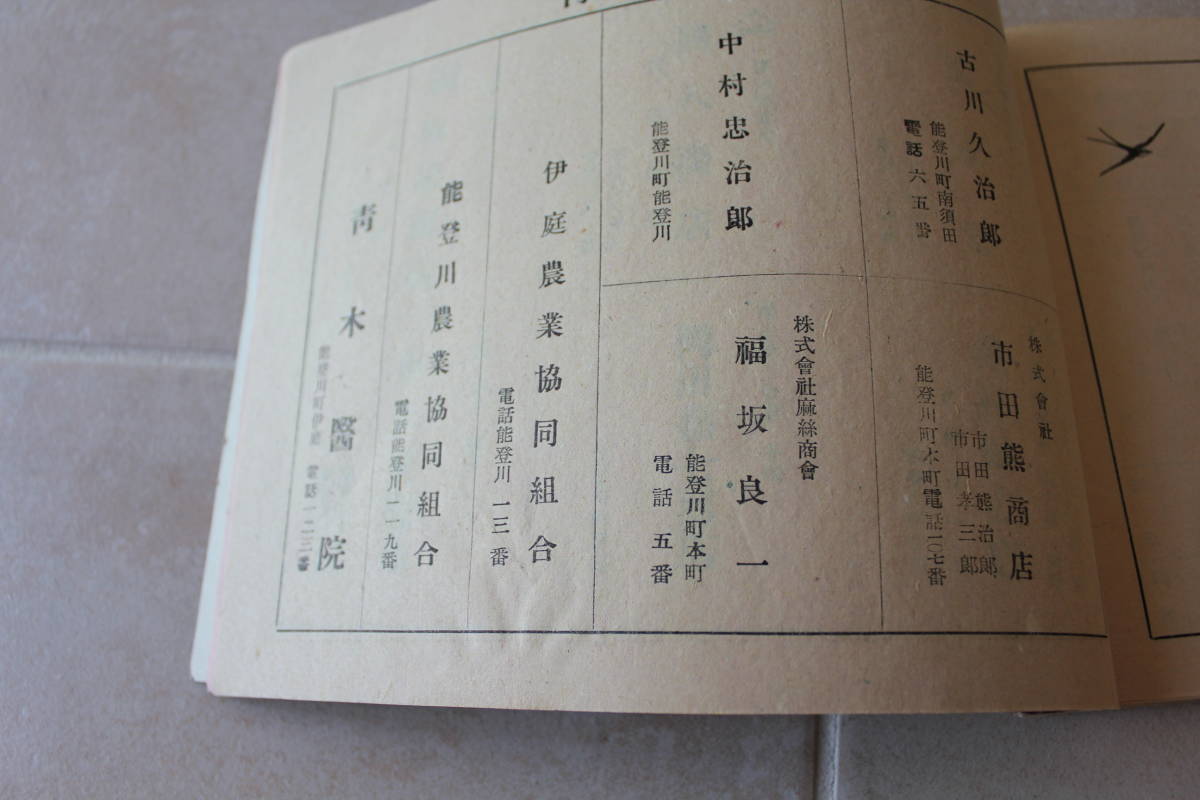 古川久治郎
能登川町南須田
電話六五番
株式會社
市田熊商店
市田熊治郎
市田孝三郎
能登川町本町電話一〇七番
中村忠治郎
能登川町能登川
株式會社麻絲商會
福坂良一
能登川町本町
電話五番
伊庭農業協同組合
電話能登川一三番
能登川農業協同組合
電話能登川一一九番
靑木醫院
能登川町伊庭 電話一二三番